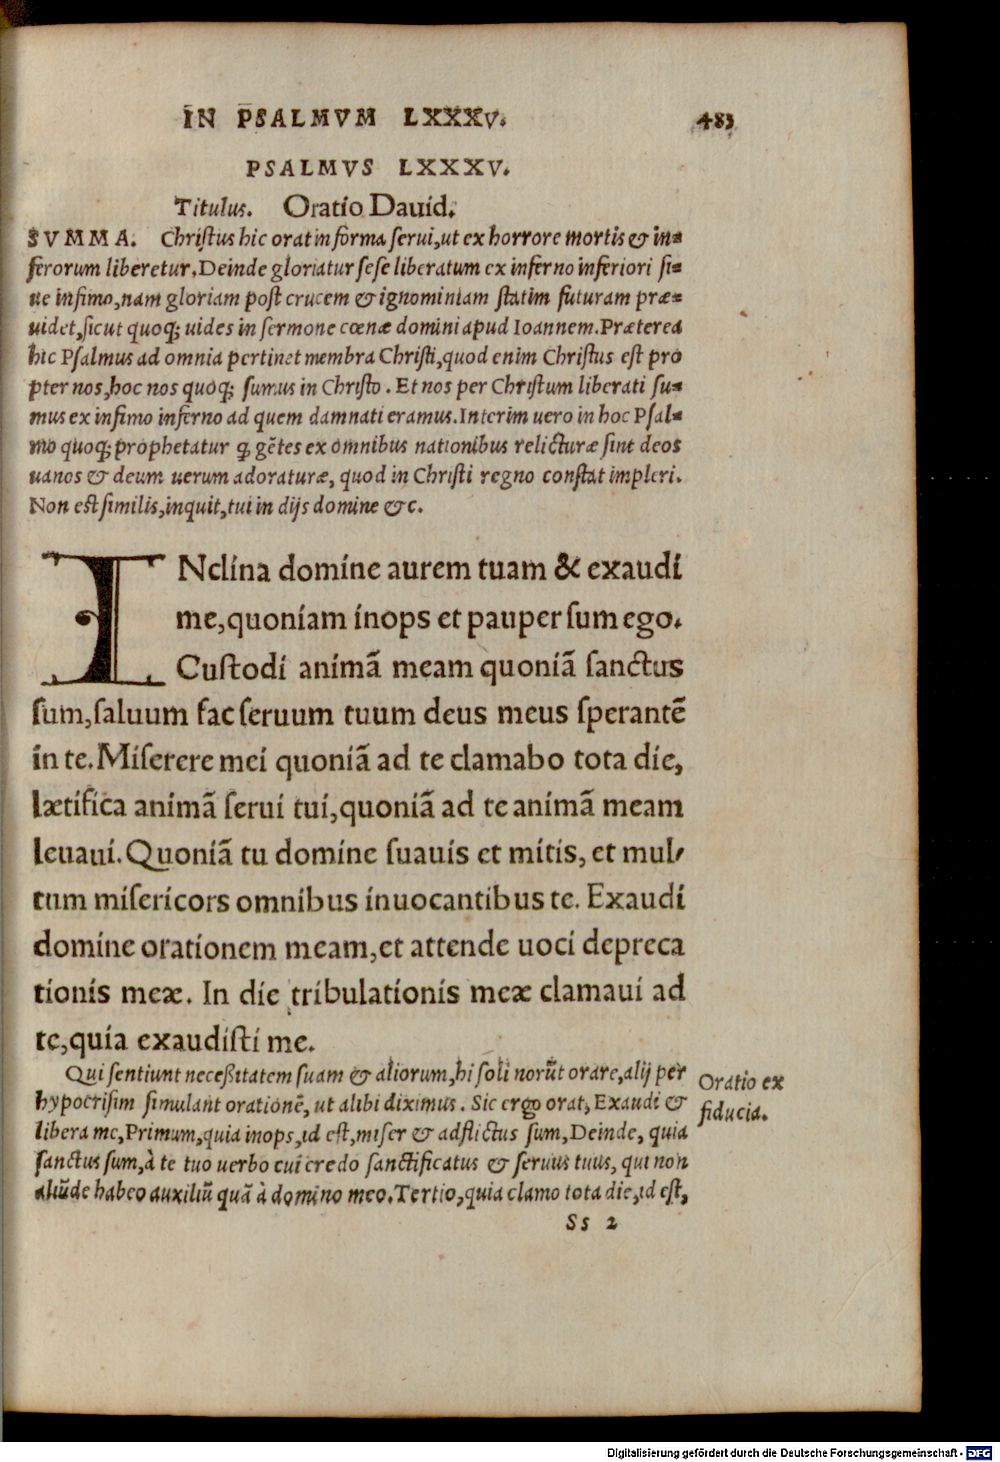 IN PSALMVM LXXXV. 483
PSALMVS LXXXV.
Titulus. Oratio Dauid.
SVMMA. Christus hic orat in forma serui, ut ex horrore mortis & in=
ferorum liberetur. Deinde gloriatur sese liberatum ex inferno inferiori si=
ue infimo, nam gloriam post crucem & ignominiam statim futuram præ=
uidet, sicut quoq; uides in sermone cœnæ domini apud Ioannem. Præterea
hic Psalmus ad omnia pertinet membra Christi, quod enim Christus est pro
pter nos, hoc nos quoq; sumus in Christo. Et nos per Christum liberati su=
mus ex infimo inferno ad quem damnati eramus. Interim uero in hoc Psal=
mo quoq; prophetatur ꝙ gẽtes ex omnibus nationibus relicturæ sint deos
uanos & deum uerum adoraturæ, quod in Christi regno constat impleri.
Non est similis, inquit, tui in dijs domine &c.
INclina domine aurem tuam & exaudi
me, quoniam inops et pauper sum ego.
Custodi animã meam quoniã sanctus
sum, saluum fac seruum tuum deus meus sperantẽ
in te. Miserere mei quoniã ad te clamabo tota die,
lætifica animã serui tui, quoniã ad te animã meam
leuaui. Quoniã tu domine suauis et mitis, et mul/
tum misericors omnibus inuocantibus te. Exaudi
domine orationem meam, et attende uoci depreca
tionis meæ. In die tribulationis meæ clamaui ad
te, quia exaudisti me.
Qui sentiunt neceßitatem suam & aliorum, hi soli norũt orare, alij per
hypocrisim simulant orationẽ, ut alibi diximus. Sic ergo orat, Exaudi &
libera me, Primum, quia inops, id est, miser & adflictus sum, Deinde, quia
sanctus sum, à te tuo uerbo cui credo sanctificatus & seruus tuus, qui non
aliũde habeo auxiliũ quã à domino meo. Tertio, quia clamo tota die, id est,
Oratio ex
fiducia.
Ss 2
Digitalisierung gefördert durch die Deutsche Forschungsgemeinschaft - DFG